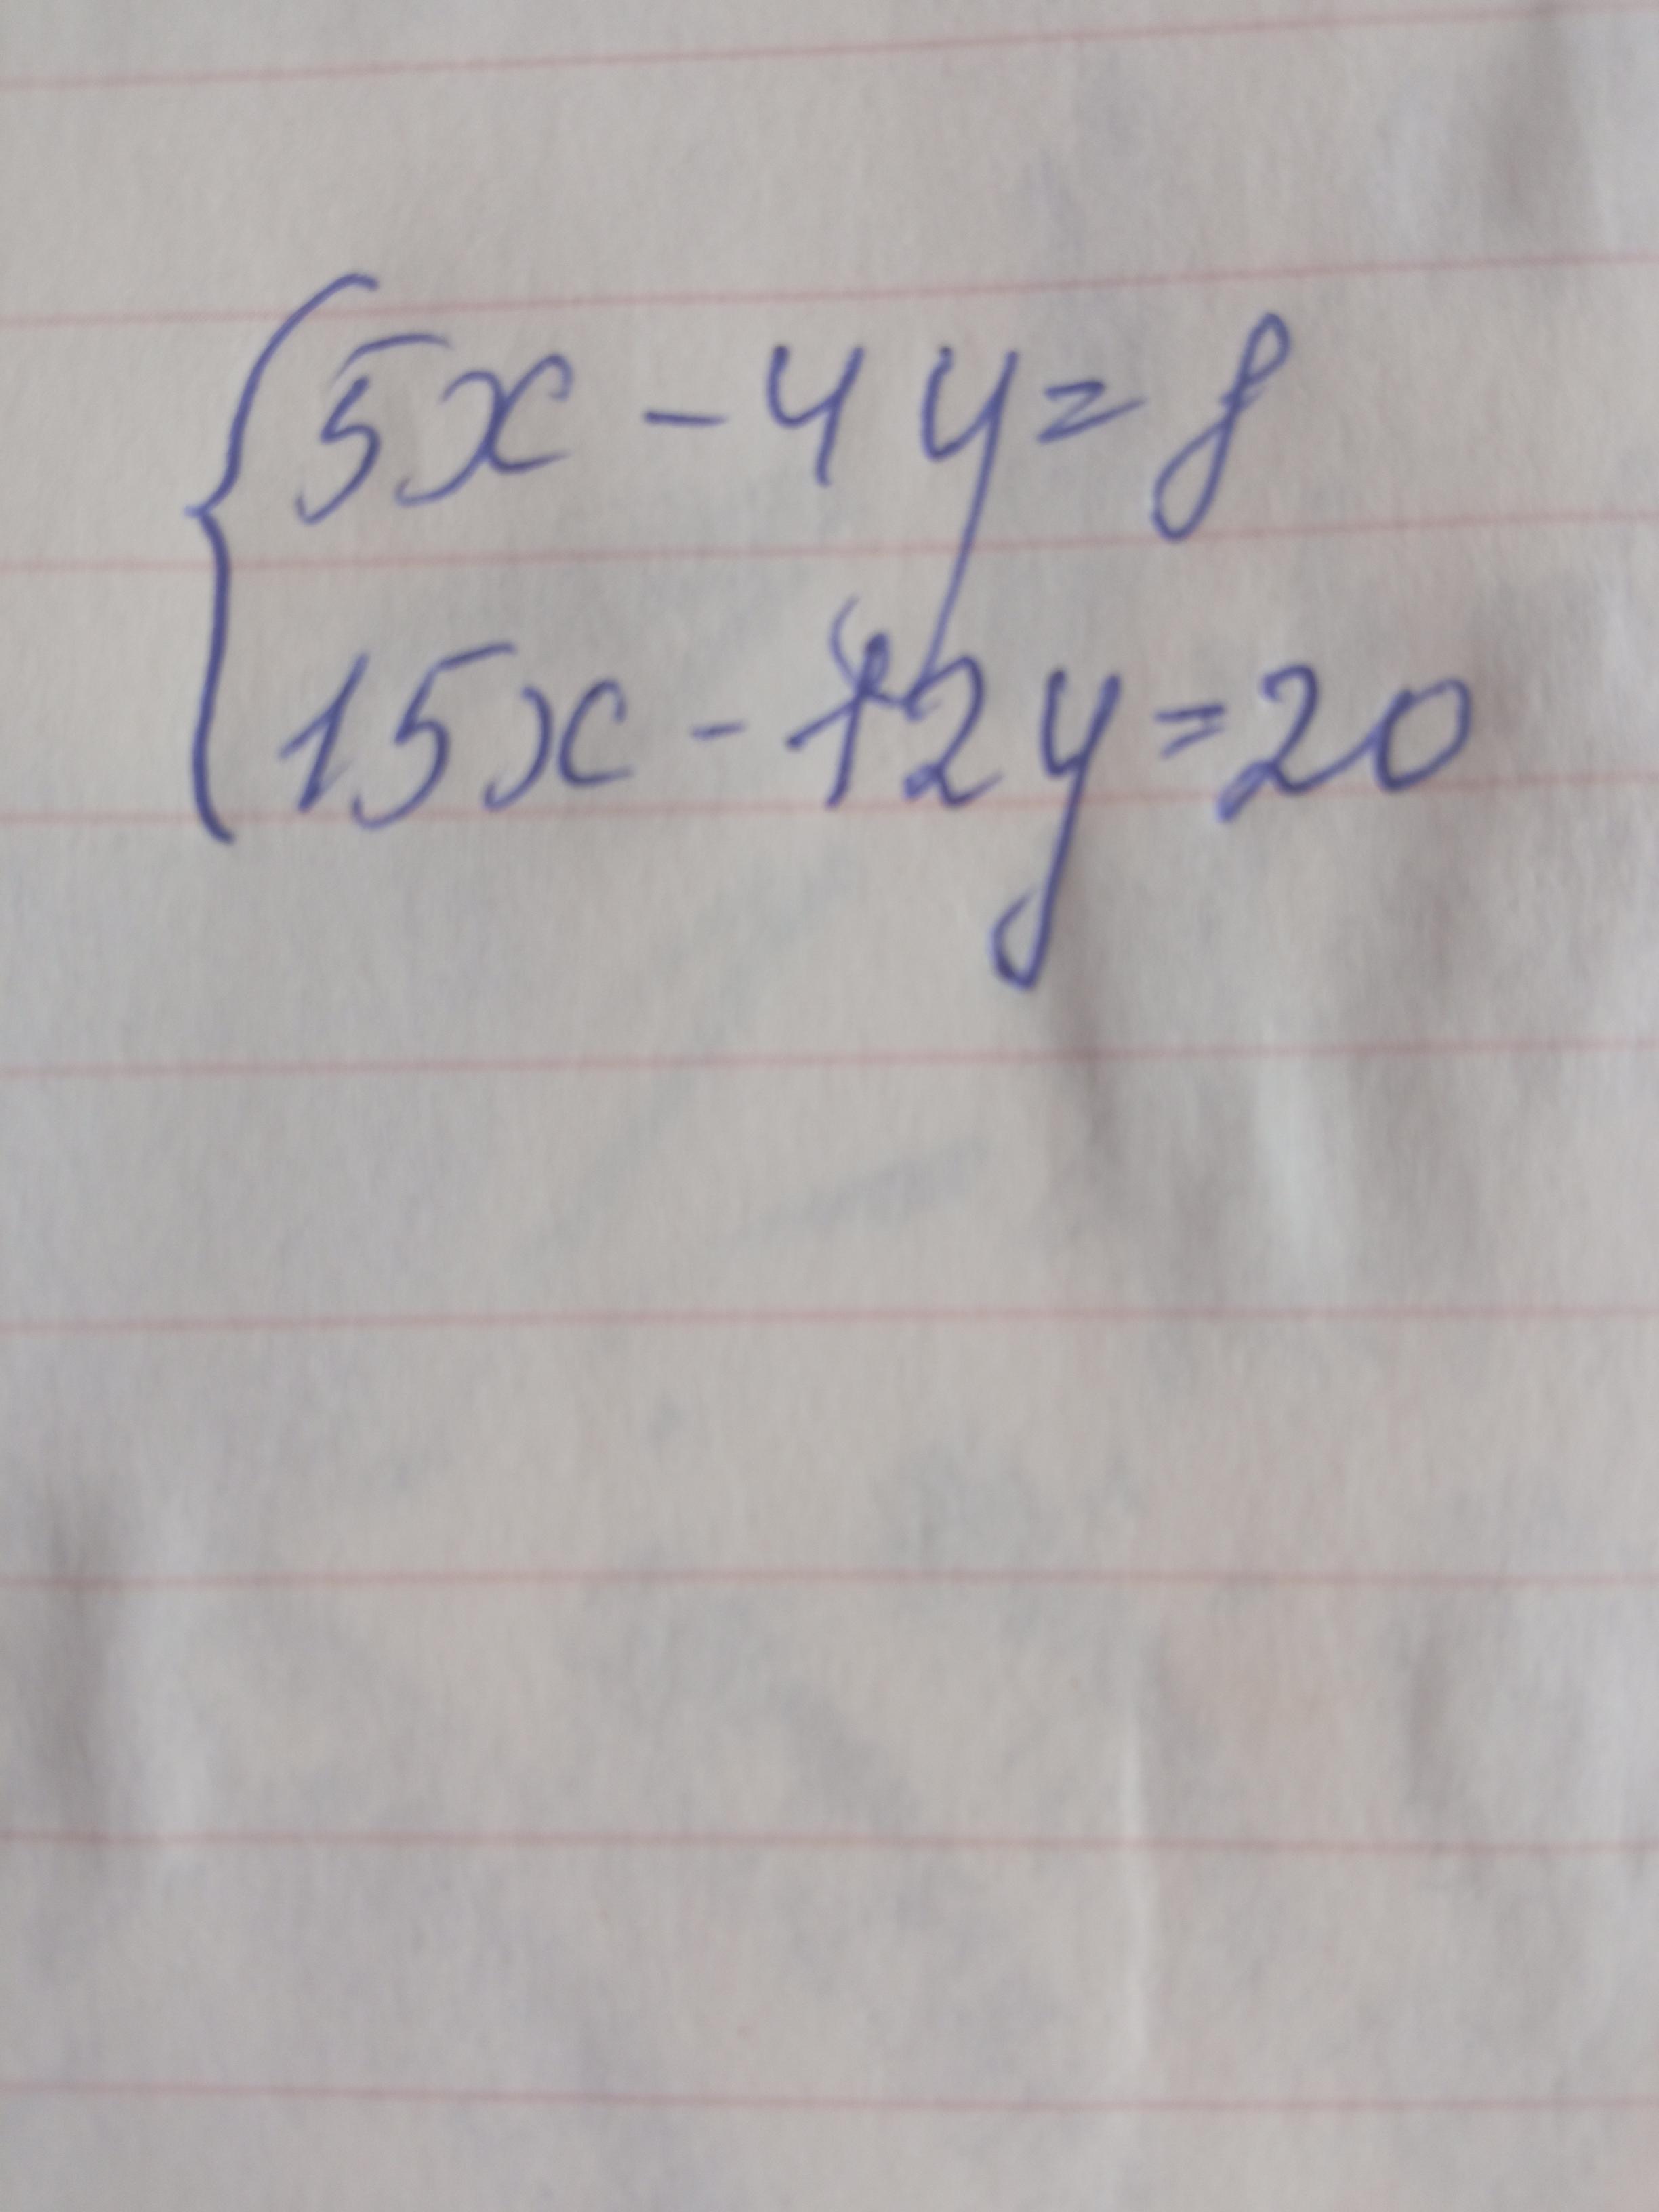 5x - 4y = 8
15x - 12y = 20